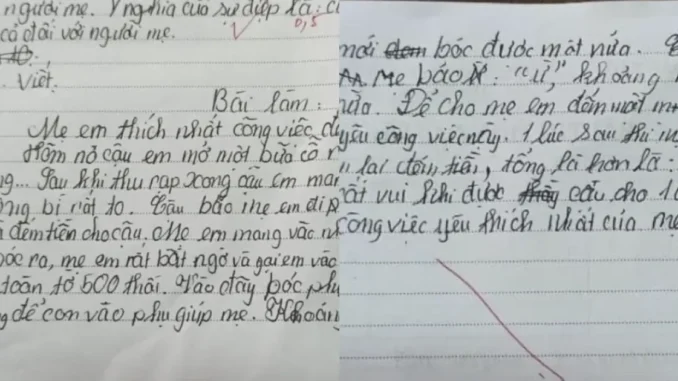 người mẹ. Ý nghĩa của sự điệp là: c
cả đối với người mẹ.
0,5
Viết:
Bài làm:
Mẹ em thích nhất công việc đ
Hôm nớ cậu em mở một bữa cỗ r
ng... Sau khi thu rạp xong cậu em man
ng bì rất to. Cậu bảo mẹ em đi p
à đếm tiền cho cậu. Mẹ em mang vào n
óc ra, mẹ em rất bất ngờ và gọi em vào
toàn tờ 500 thôi. Vào đây bóc phụ
g để con vào phụ giúp mẹ. Khoản
mới bóc được một nửa.
Mẹ bảo: "ừ," khoảng
nữa. Để cho mẹ em đếm
yêu công việc này. 1 lúc sau thì m
lại đếm tiền, tổng là hơn là:
rất vui khi được cậu cho 1
công việc yêu thích nhất của mẹ